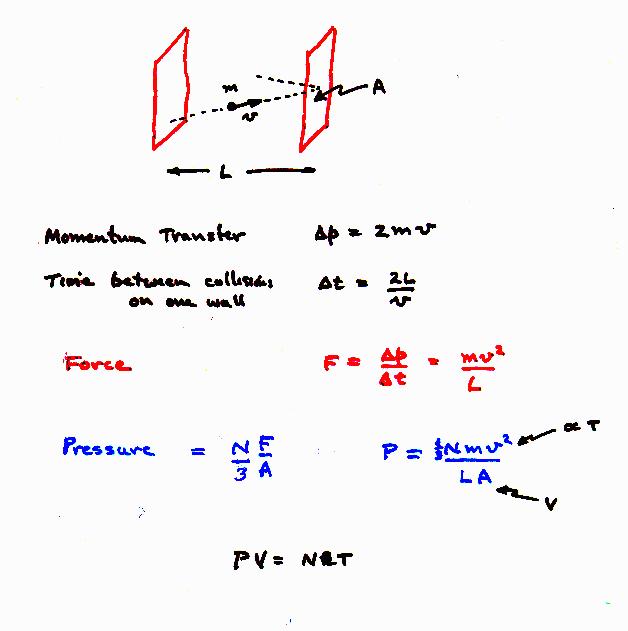 m
v
A
L
Momentum Transfer Δp = 2mv
Time between collisions Δt = 2L/v
on one wall
Force F = Δp/Δt = mv²/L
Pressure = N/3 F/A P = ⅓Nmv²/LA ∝ T
V
PV = NRT